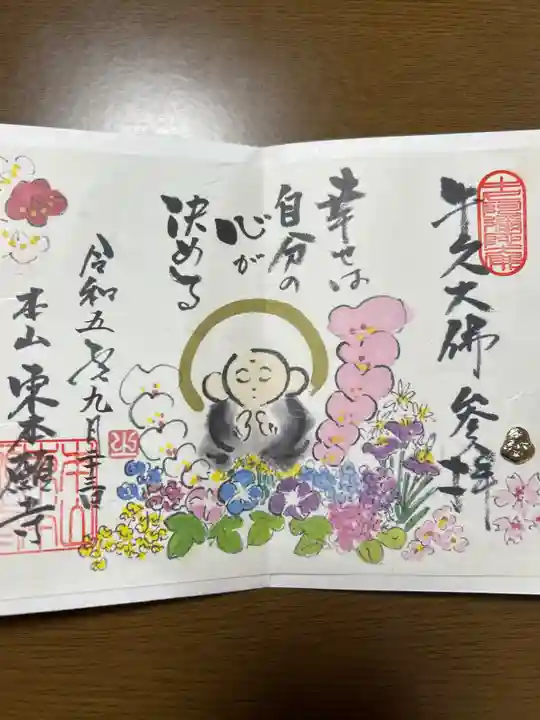 牛久大佛参拝
幸せは
自分の
心が
決める
令和五年九月二十三日
本山東本願寺